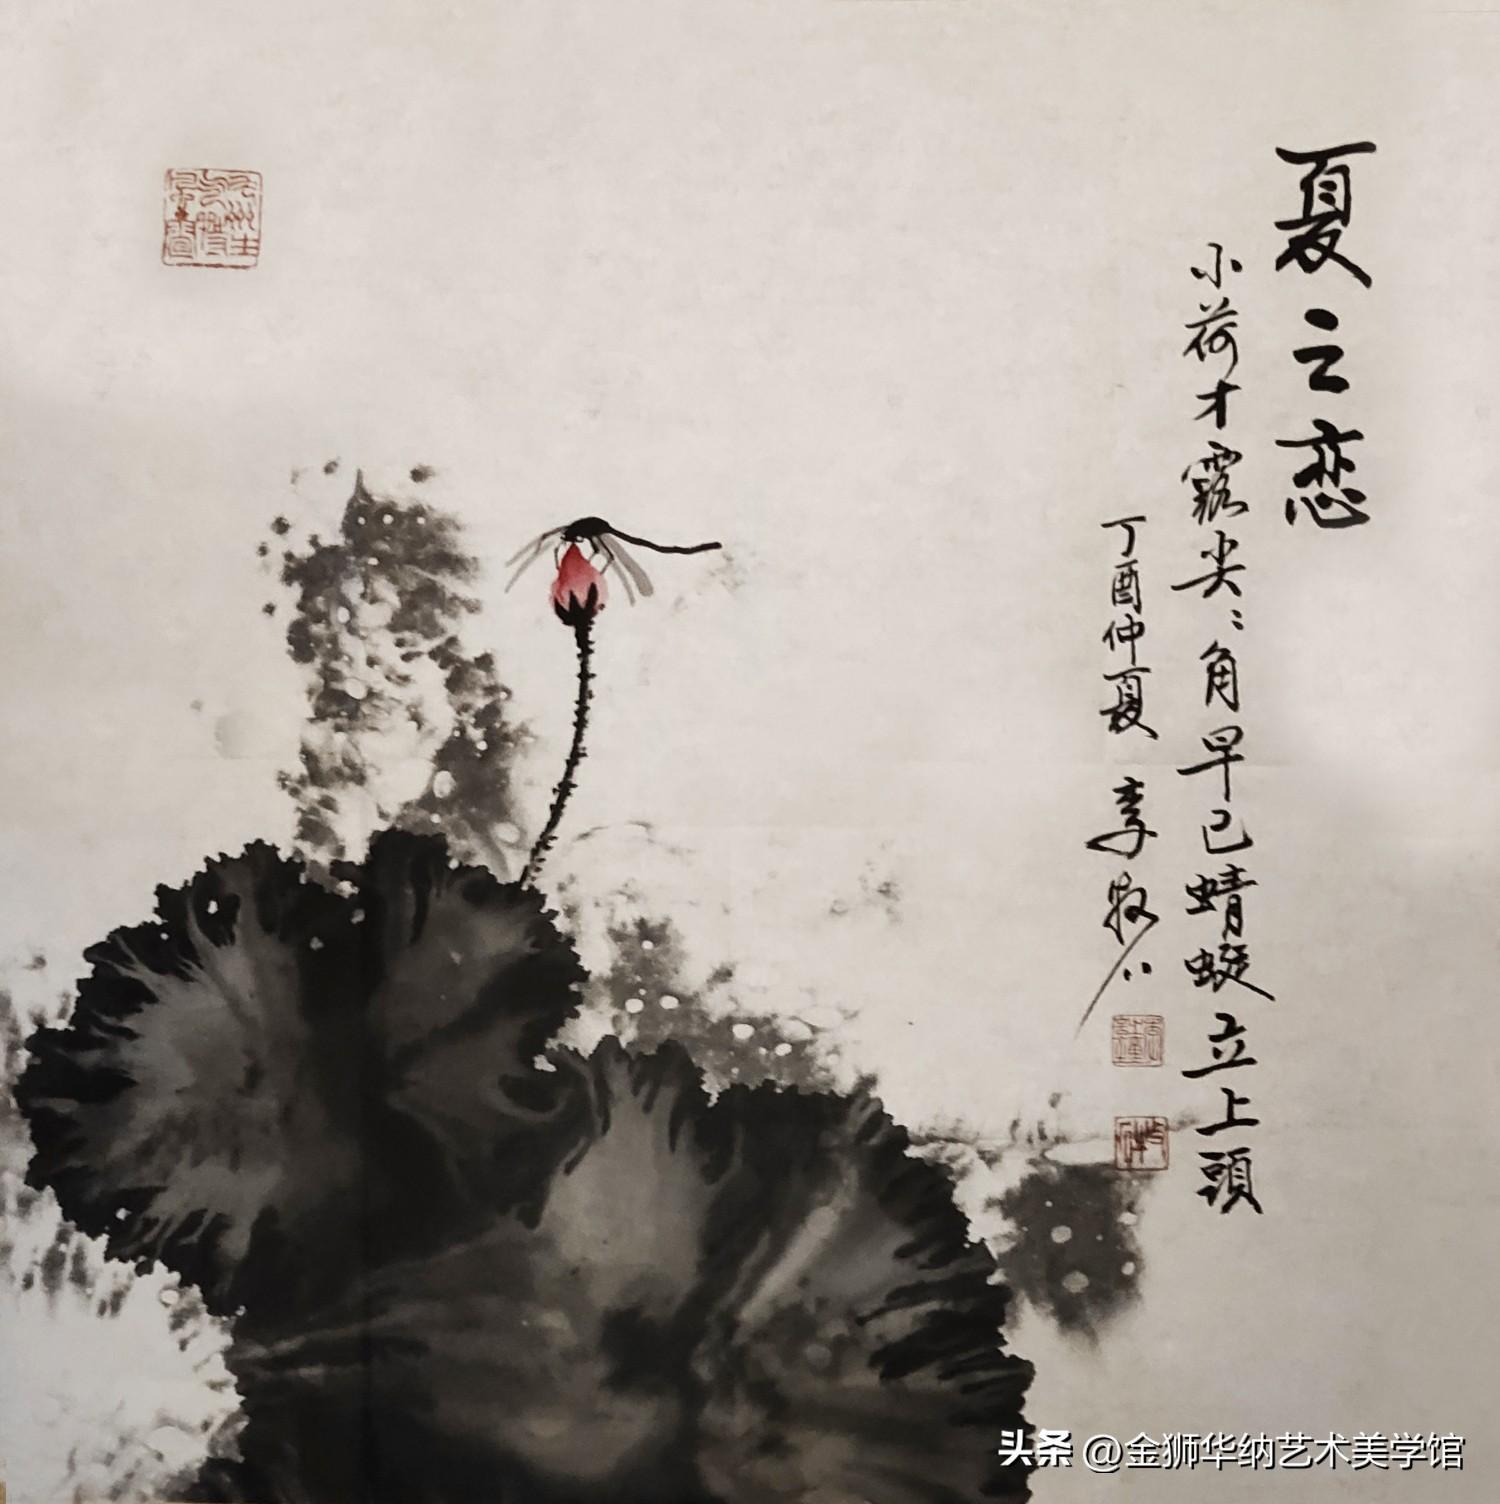 夏之恋
小荷才露尖〻角早已蜻蜓立上頭
丁酉仲夏 李牧
头条 @金狮华纳艺术美学馆